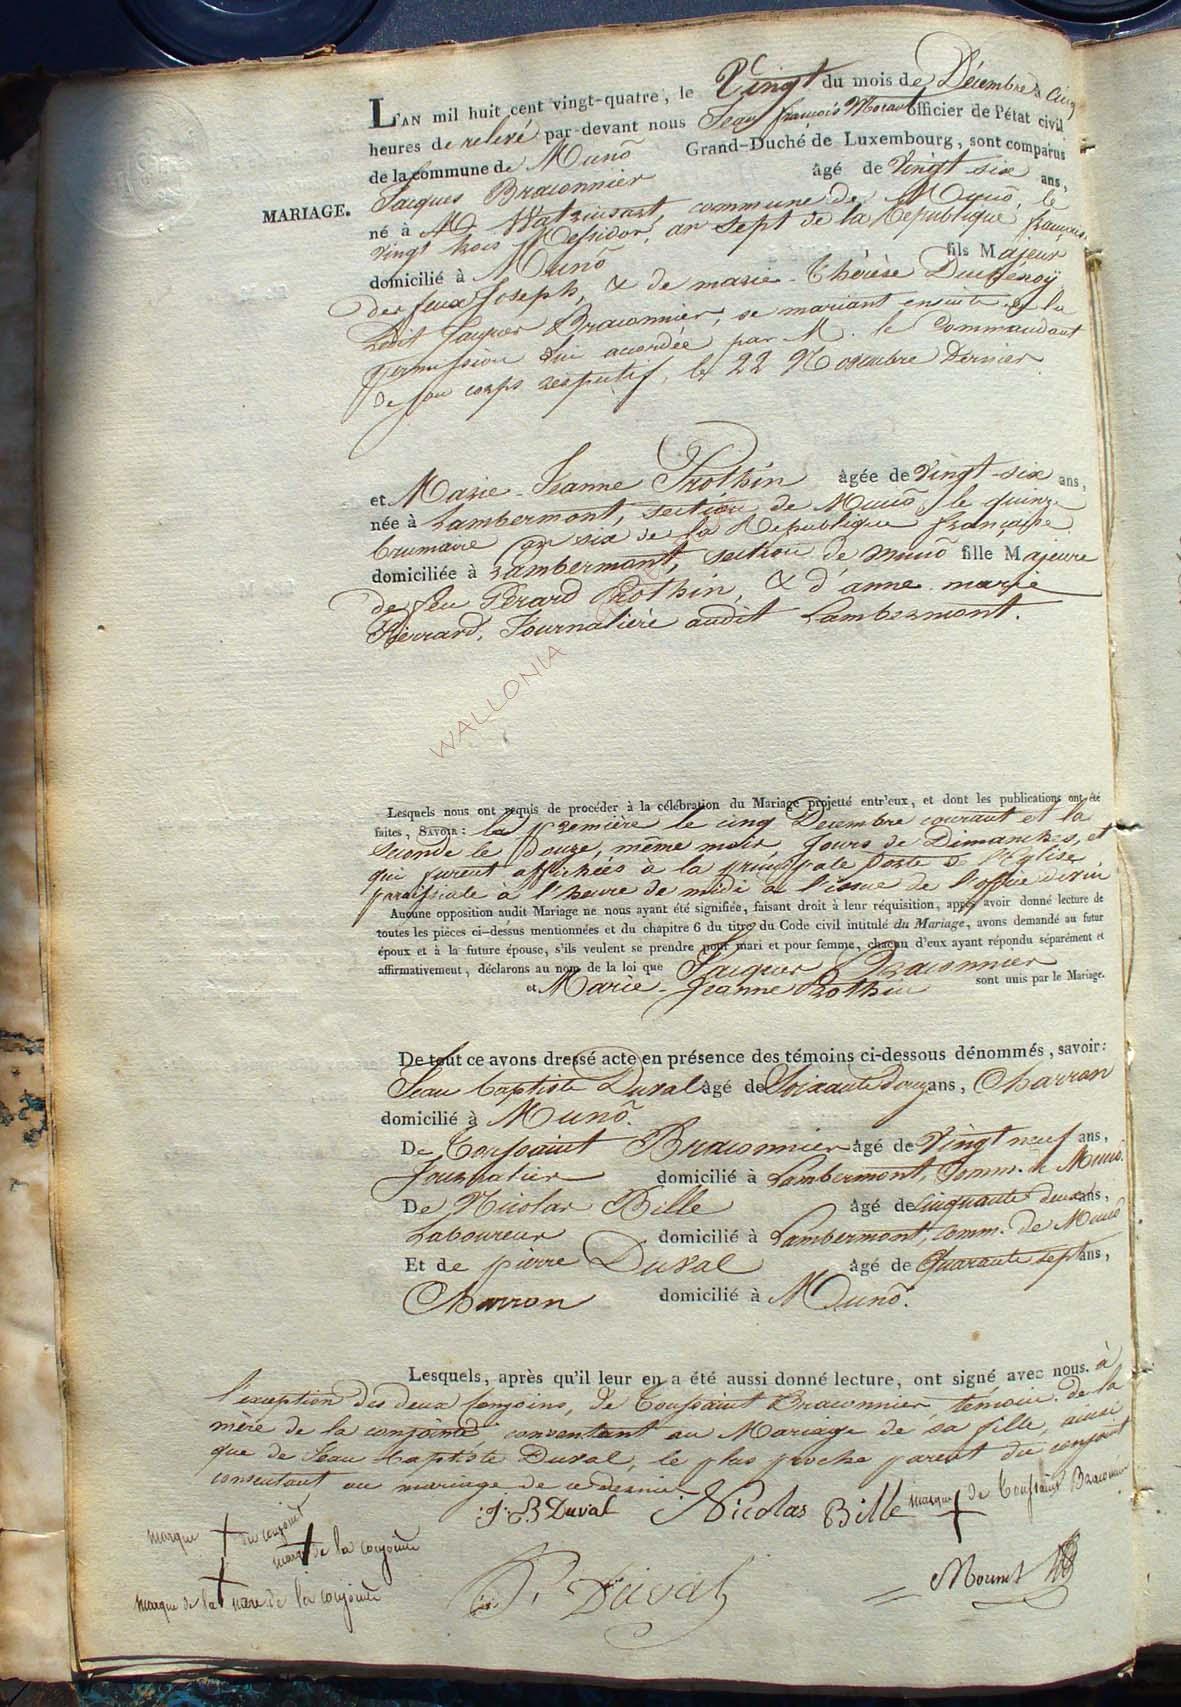 L'AN mil huit cent vingt-quatre, le Vingt du mois de Décembre à cinq
heures de relevé par-devant nous Jean François officier de l'état civil
de la commune de Muno Grand-Duché de Luxembourg, sont comparus
Jacques Braconnier âgé de Vingt six ans,
MARIAGE.
né à commune de Muno, le
vingt trois Messidor, an sept de la République française
domicilié à Muno fils Majeur
de feu Joseph, & de marie-Thérèse
Ledit Jacques Braconnier, se mariant ensuite de la
permission lui accordée par M. le Commandant
de son corps respectif, le 22 Novembre Dernier.
et Marie-Jeanne Prothin âgée de Vingt-six ans,
née à Lambermont, section de Muno, le quinze
brumaire an six de la République française
domiciliée à Lambermont, section de muno fille Majeure
de feu Gérard Prothin, & d'anne marie
Pierrard, Journalière audit Lambermont.
WALLONIA
Lesquels nous ont requis de procéder à la célébration du Mariage projetté entr'eux, et dont les publications ont été
faites, SAVOIR: la première le cinq Decembre courant et la
seconde le Douze, même mois, Jours de Dimanches, et
qui furent affichées à la principale Porte de l'Eglise
paroissiale à l'heure de midi à l'issue de l'office divin
Aucune opposition audit Mariage ne nous ayant été signifiée, faisant droit à leur réquisition, après avoir donné lecture de
toutes les pièces ci-dessus mentionnées et du chapitre 6 du titre du Code civil intitulé du Mariage, avons demandé au futur
époux et à la future épouse, s'ils veulent se prendre pour mari et pour femme, chacun d'eux ayant répondu séparément et
affirmativement, déclarons au nom de la loi que Jacques Braconnier
et Marie-Jeanne Prothin sont unis par le Mariage.
De tout ce avons dressé acte en présence des témoins ci-dessous dénommés, savoir:
Jean baptiste Duval âgé de Soixante douze ans, Charron
domicilié à Muno.
De Toussaint Braconnier âgé de Vingt neuf ans,
Journalier domicilié à Lambermont, Comm. de Muno.
De Nicolas Bille âgé de cinquante deux ans,
Laboureur domicilié à Lambermont, comm. de Muno
Et de pierre Duval âgé de Quarante sept ans,
Charron domicilié à Muno.
Lesquels, après qu'il leur en a été aussi donné lecture, ont signé avec nous. à
l'exception des deux conjoins, de Toussaint Braconnier témoin, de la
mère de la conjointe consentant au Mariage de sa fille, ainsi
que de Jean baptiste Duval, le plus proche parent du conjoint
consentant au mariage de ce dernier.
J. B Duval Nicolas Bille marque de Toussaint Braconnier
marque du conjoint
marque de la conjointe
marque de la mere de la conjointe
P. Duval